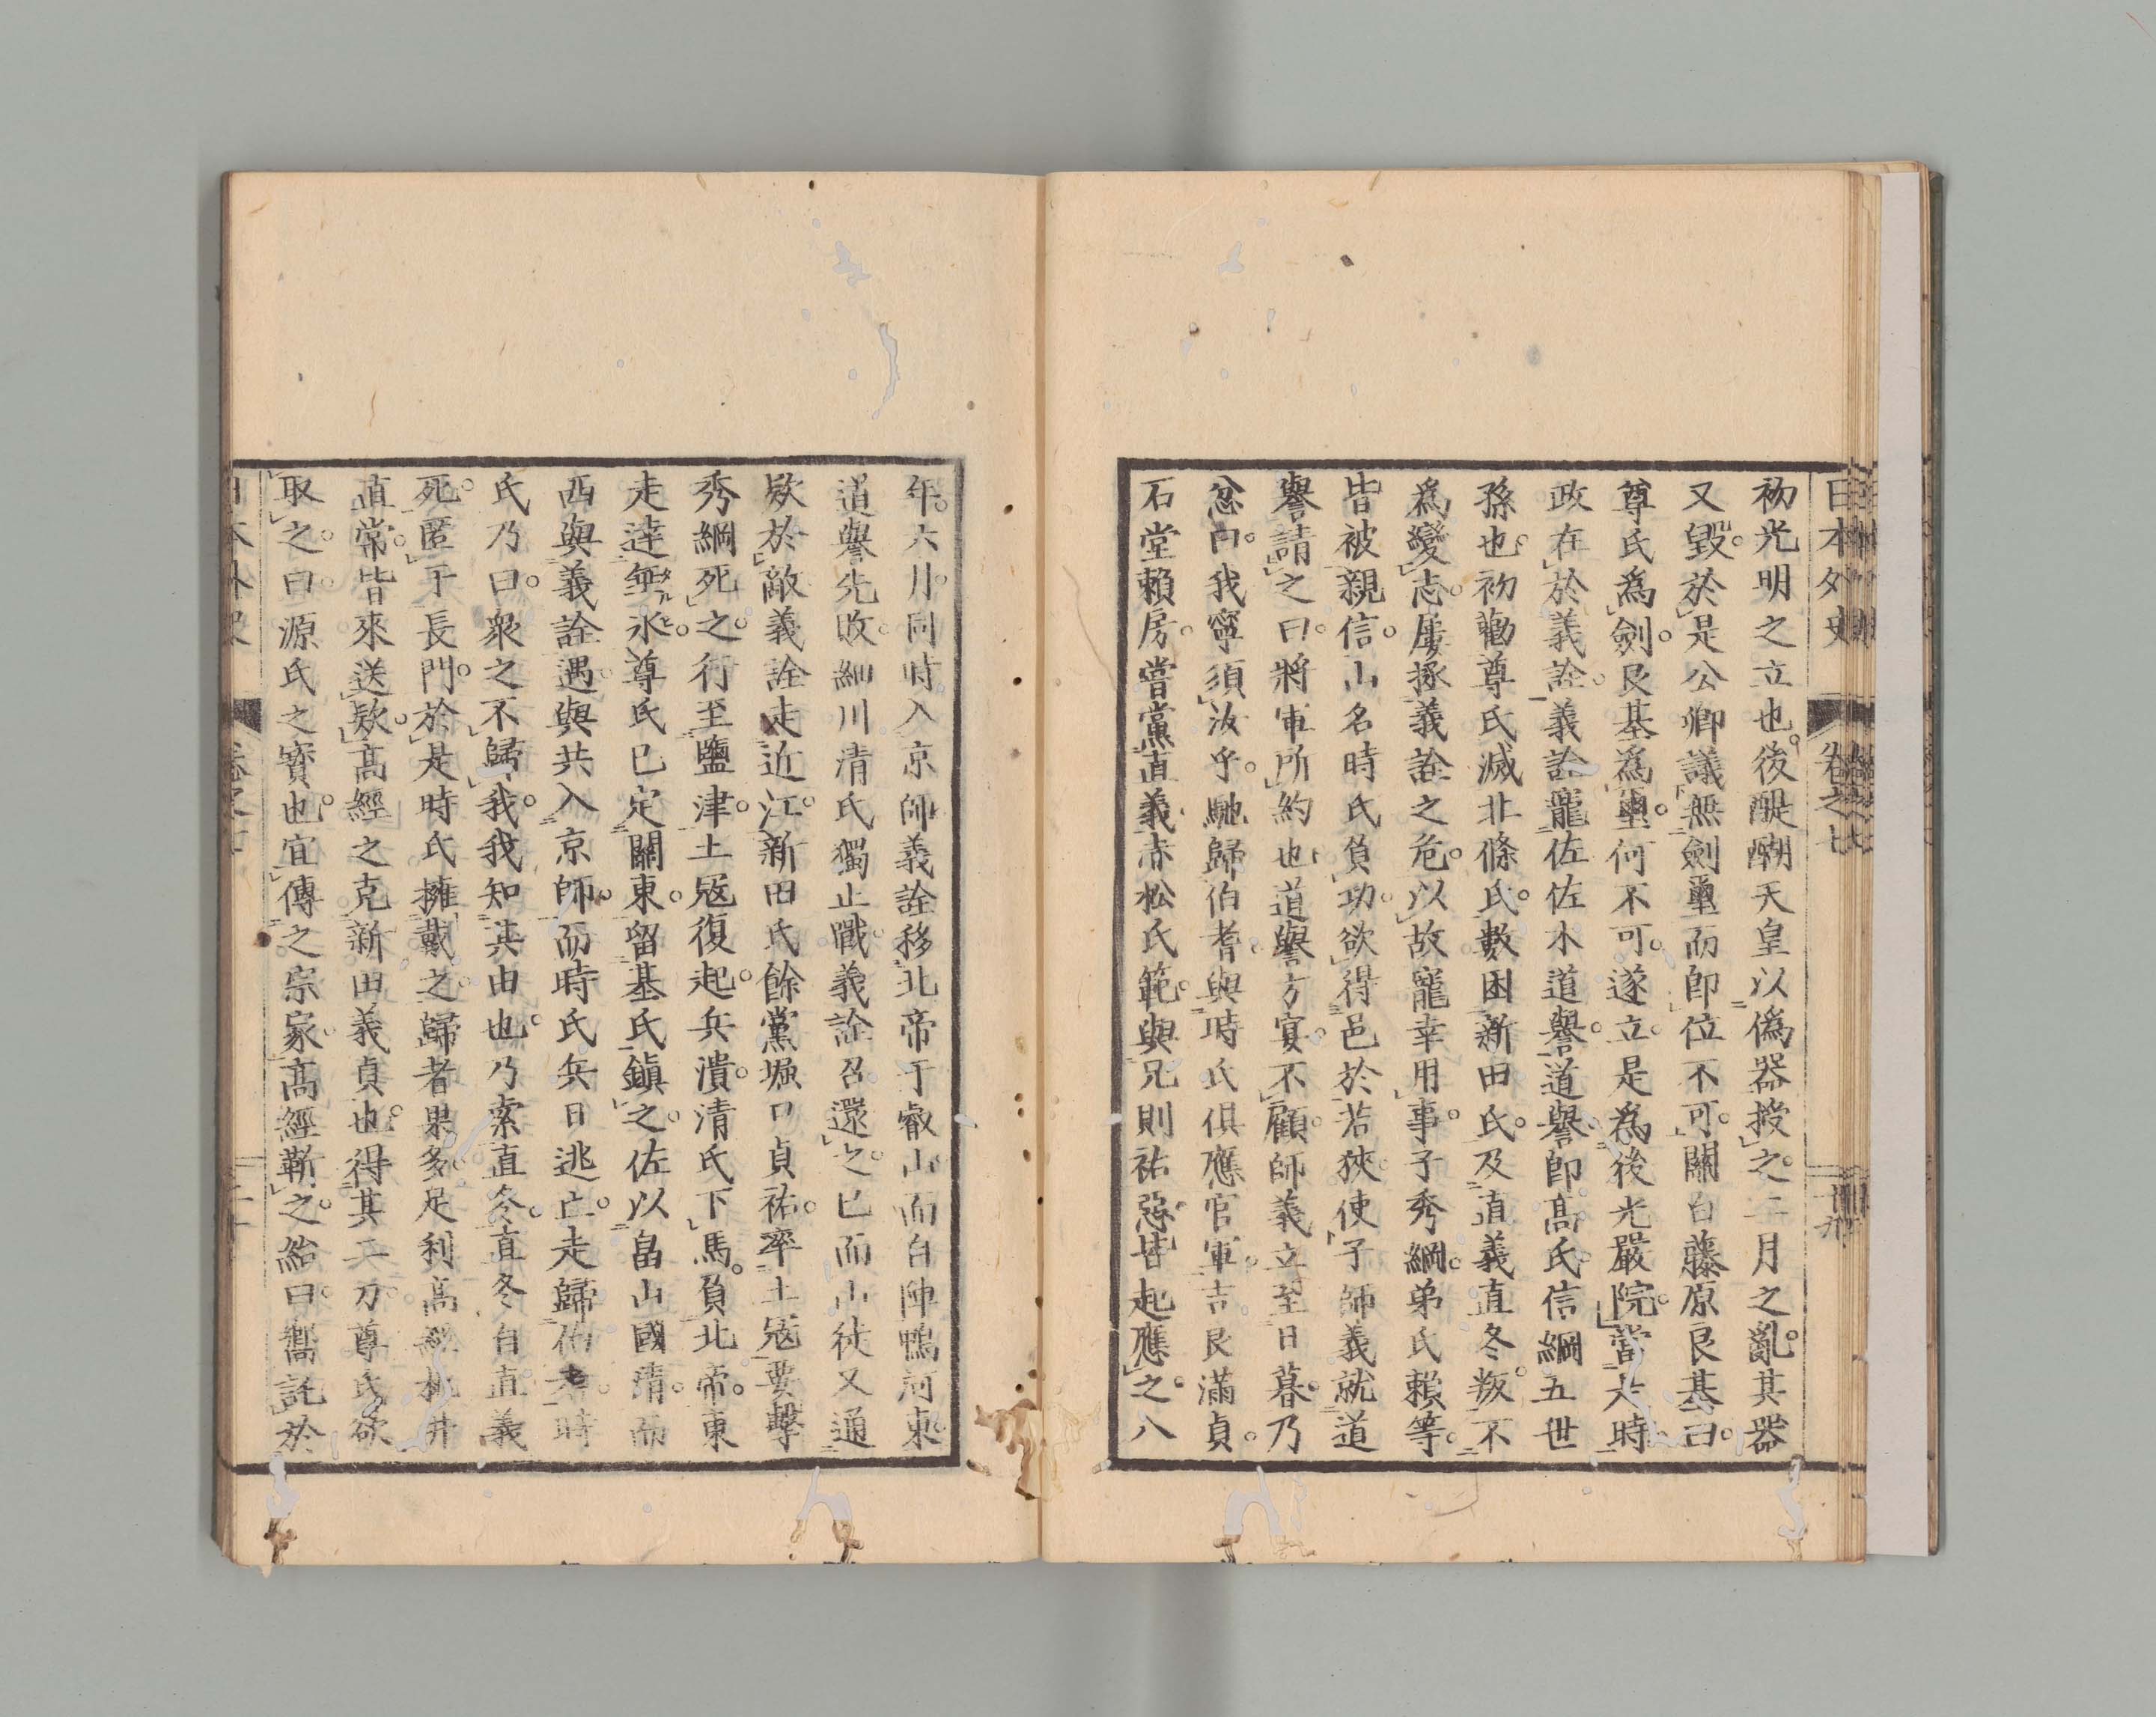 日本外史 卷之七 十九
初光明之立也。後醍醐天皇以僞器授之。二月之亂。其器
又毀。於是公卿議無劍璽而卽位不可。關白藤原良基曰。
尊氏爲劍。良基爲璽。何不可。遂立。是爲後光嚴院。當大時
政在於義詮。義詮寵佐佐木道譽。道譽卽高氏。信綱五世
孫也。初勸尊氏滅北條氏。數困新田氏。及直義直冬叛。不
爲變志。屢拯義詮之危。以故寵幸用事。子秀綱。弟氏賴等。
皆被親信。山名時氏負功。欲得邑於若狹。使子師義就道
譽請之曰。將軍所約也。道譽方宴。不顧。師義立至日暮。乃
忿曰。我寧須汝乎。馳歸伯耆。與時氏俱應官軍。吉良滿貞。
石堂賴房。嘗黨直義。赤松氏範。與兄則祐惡。皆起應之。八
年。六月。同時入京師。義詮移北帝于叡山。而自陣鴨河東。
道譽先敗。細川清氏獨止職。義詮召還之。已而山徒又通
欵於敵。義詮走近江。新田氏餘黨堀口貞祐。率土寇要擊
秀綱死之。行至鹽津。土寇復起。兵潰。清氏下馬。負北帝。東
走達垂氷。尊氏已定關東。留基氏鎭之。佐以畠山國清。而
西與義詮遇。與共入京師。而時氏兵日逃亡。走歸伯耆。時
氏乃曰。衆之不歸我。我知其由也。乃索直冬。直冬自直義
死。匿于長門。於是時氏擁戴之。歸者果多。足利高經桃井
直常。皆來送欵。高經之克新田義貞也。得其二刀。尊氏欲
取之。曰源氏之寶也。宜傳之宗家。高經靳之。紿曰。嚮託於